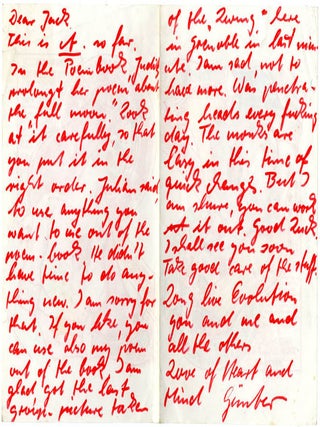 Dear Jack
This is it. so far.
In the Poembook, Judith
prolongt her poem about
the "full moon." Look
at it carefully, so that
you put it in the
right order. Julian said,
to use anything you
want to use out of the
poem-book. He didn't
have time to do any-
thing new. I am sorry for
that. If you like, you
can use also my poem
out of the book, I am
glad got the last
groupe-picture taken
of the "Living" here
in Grenoble in last min-
ute. I am sad, not to
have more. Was penetra-
ting heads every fucking
day. The monks are
lazy in this time of
quick change. But I
am shure, you can work
it out. Good Luck.
I shall see you soon
Take good care of the stuff.
Long live Evolution
you and me and
all the others
Love of Heart and
Mind Günter